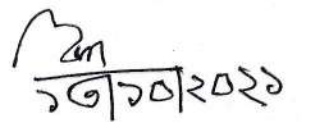 ১৩|১০|২০২১